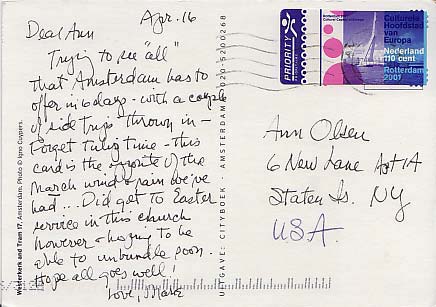 Apr. 16
Dear Ann
Trying to see "all"
that Amsterdam has to
offer in 6 days - with a couple
of side trips thrown in -
Forget Tulip time - this
card is the opposite of the
March wind & rain we've
had... Did get to Easter
service in this church
however & hoping to be
able to unbundle soon.
Hope all goes well!
Love,
Westerkerk and Tram 17, Amsterdam. Photo © Igno Cuypers.
UITGAVE: CITYBOEK - AMSTERDAM - 020-5200268
PRIORITY
Rotterdam 2001
Culturele Hoofdstad
van
Europa
Nederland
110 cent
Rotterdam
2001
Ann Olsen
6 New Lane Apt 1A
Staten Is. NY
USA.